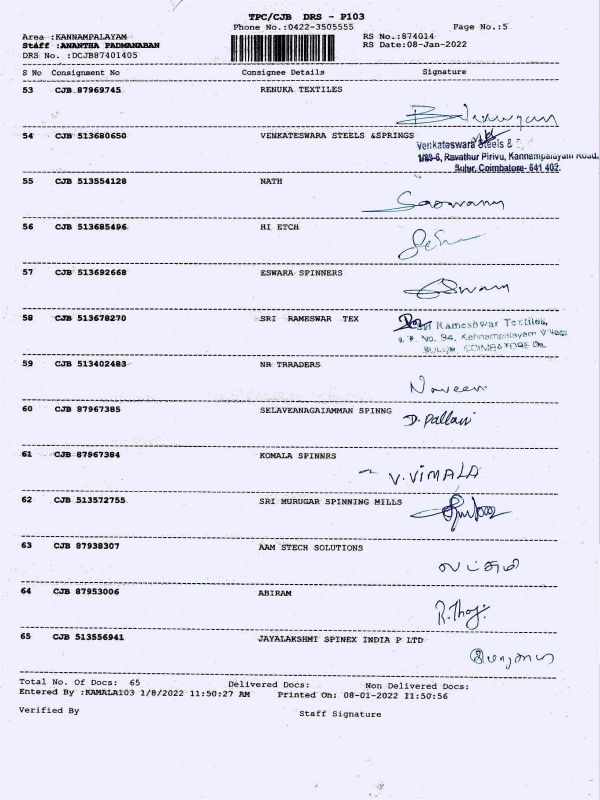 TPC/CJB DRS - P103
Phone No.:0422-3505555 Page No.:5
Area :KANNAMPALAYAM RS No.:874014
Staff :ANANTHA PADMANABAN RS Date:08-Jan-2022
DRS No. :DCJB87401405
S No Consignment No Consignee Details Signature
53 CJB 87969745 RENUKA TEXTILES
54 CJB 513680650 VENKATESWARA STEELS &SPRINGS
Venkateswara Steels &
1/89-6, Ravathur Pirivu, Kannampalayam Road,
Sulur, Coimbatore- 641 402.
55 CJB 513554128 NATH
Saswany
56 CJB 513685496 HI ETCH
57 CJB 513692668 ESWARA SPINNERS
Eswary
58 CJB 513678270 SRI RAMESWAR TEX
Sri Rameshwar Textiles,
No. 94, Kannampalayam
SULUR, COIMBATORE
59 CJB 513402483 NR TRRADERS
Naveen
60 CJB 87967385 SELAVEANAGAIAMMAN SPINNG
D. Pallavi
61 CJB 87967384 KOMALA SPINNRS
V. VIMALA
62 CJB 513572755 SRI MURUGAR SPINNING MILLS
63 CJB 87938307 AAM STECH SOLUTIONS
64 CJB 87953006 ABIRAM
65 CJB 513556941 JAYALAKSHMI SPINEX INDIA P LTD
Total No. Of Docs: 65 Delivered Docs: Non Delivered Docs:
Entered By :KAMALA103 1/8/2022 11:50:27 AM Printed On: 08-01-2022 11:50:56
Verified By Staff Signature